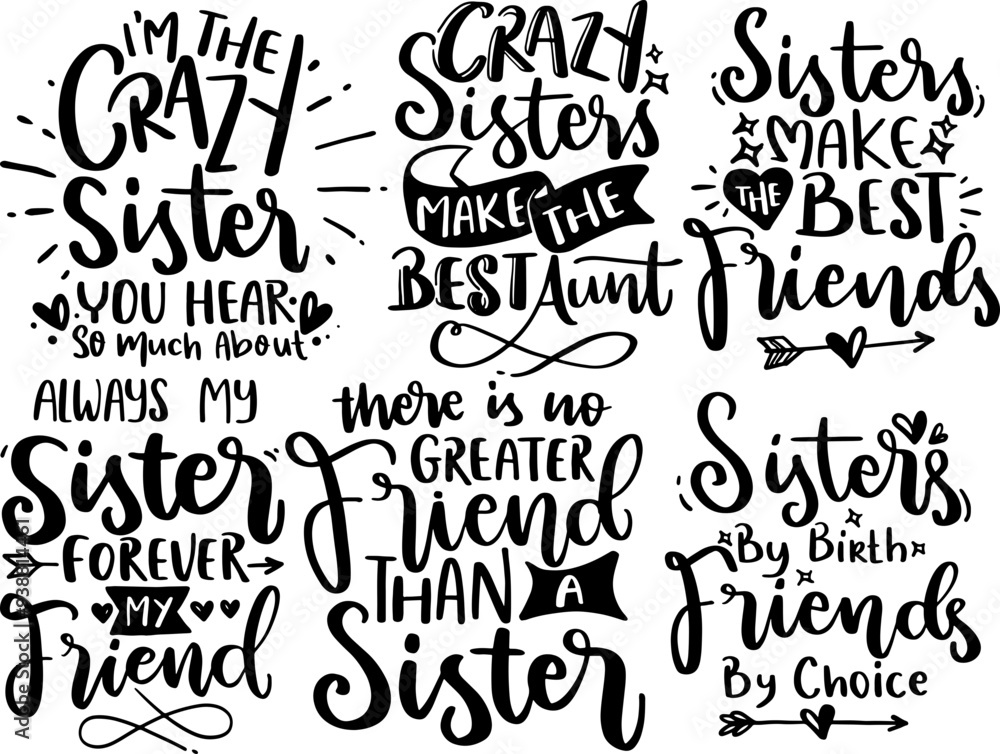 I'M THE
CRAZY
Sister
YOU HEAR
So Much About
CRAZY
Sisters
MAKE THE
BEST Aunt
Sisters
MAKE
THE BEST
Friends
ALWAYS MY
Sister
FOREVER
MY
Friend
there is no
GREATER
Friend
THAN A
Sister
Sisters
By Birth
Friends
By Choice
Adobe Stock